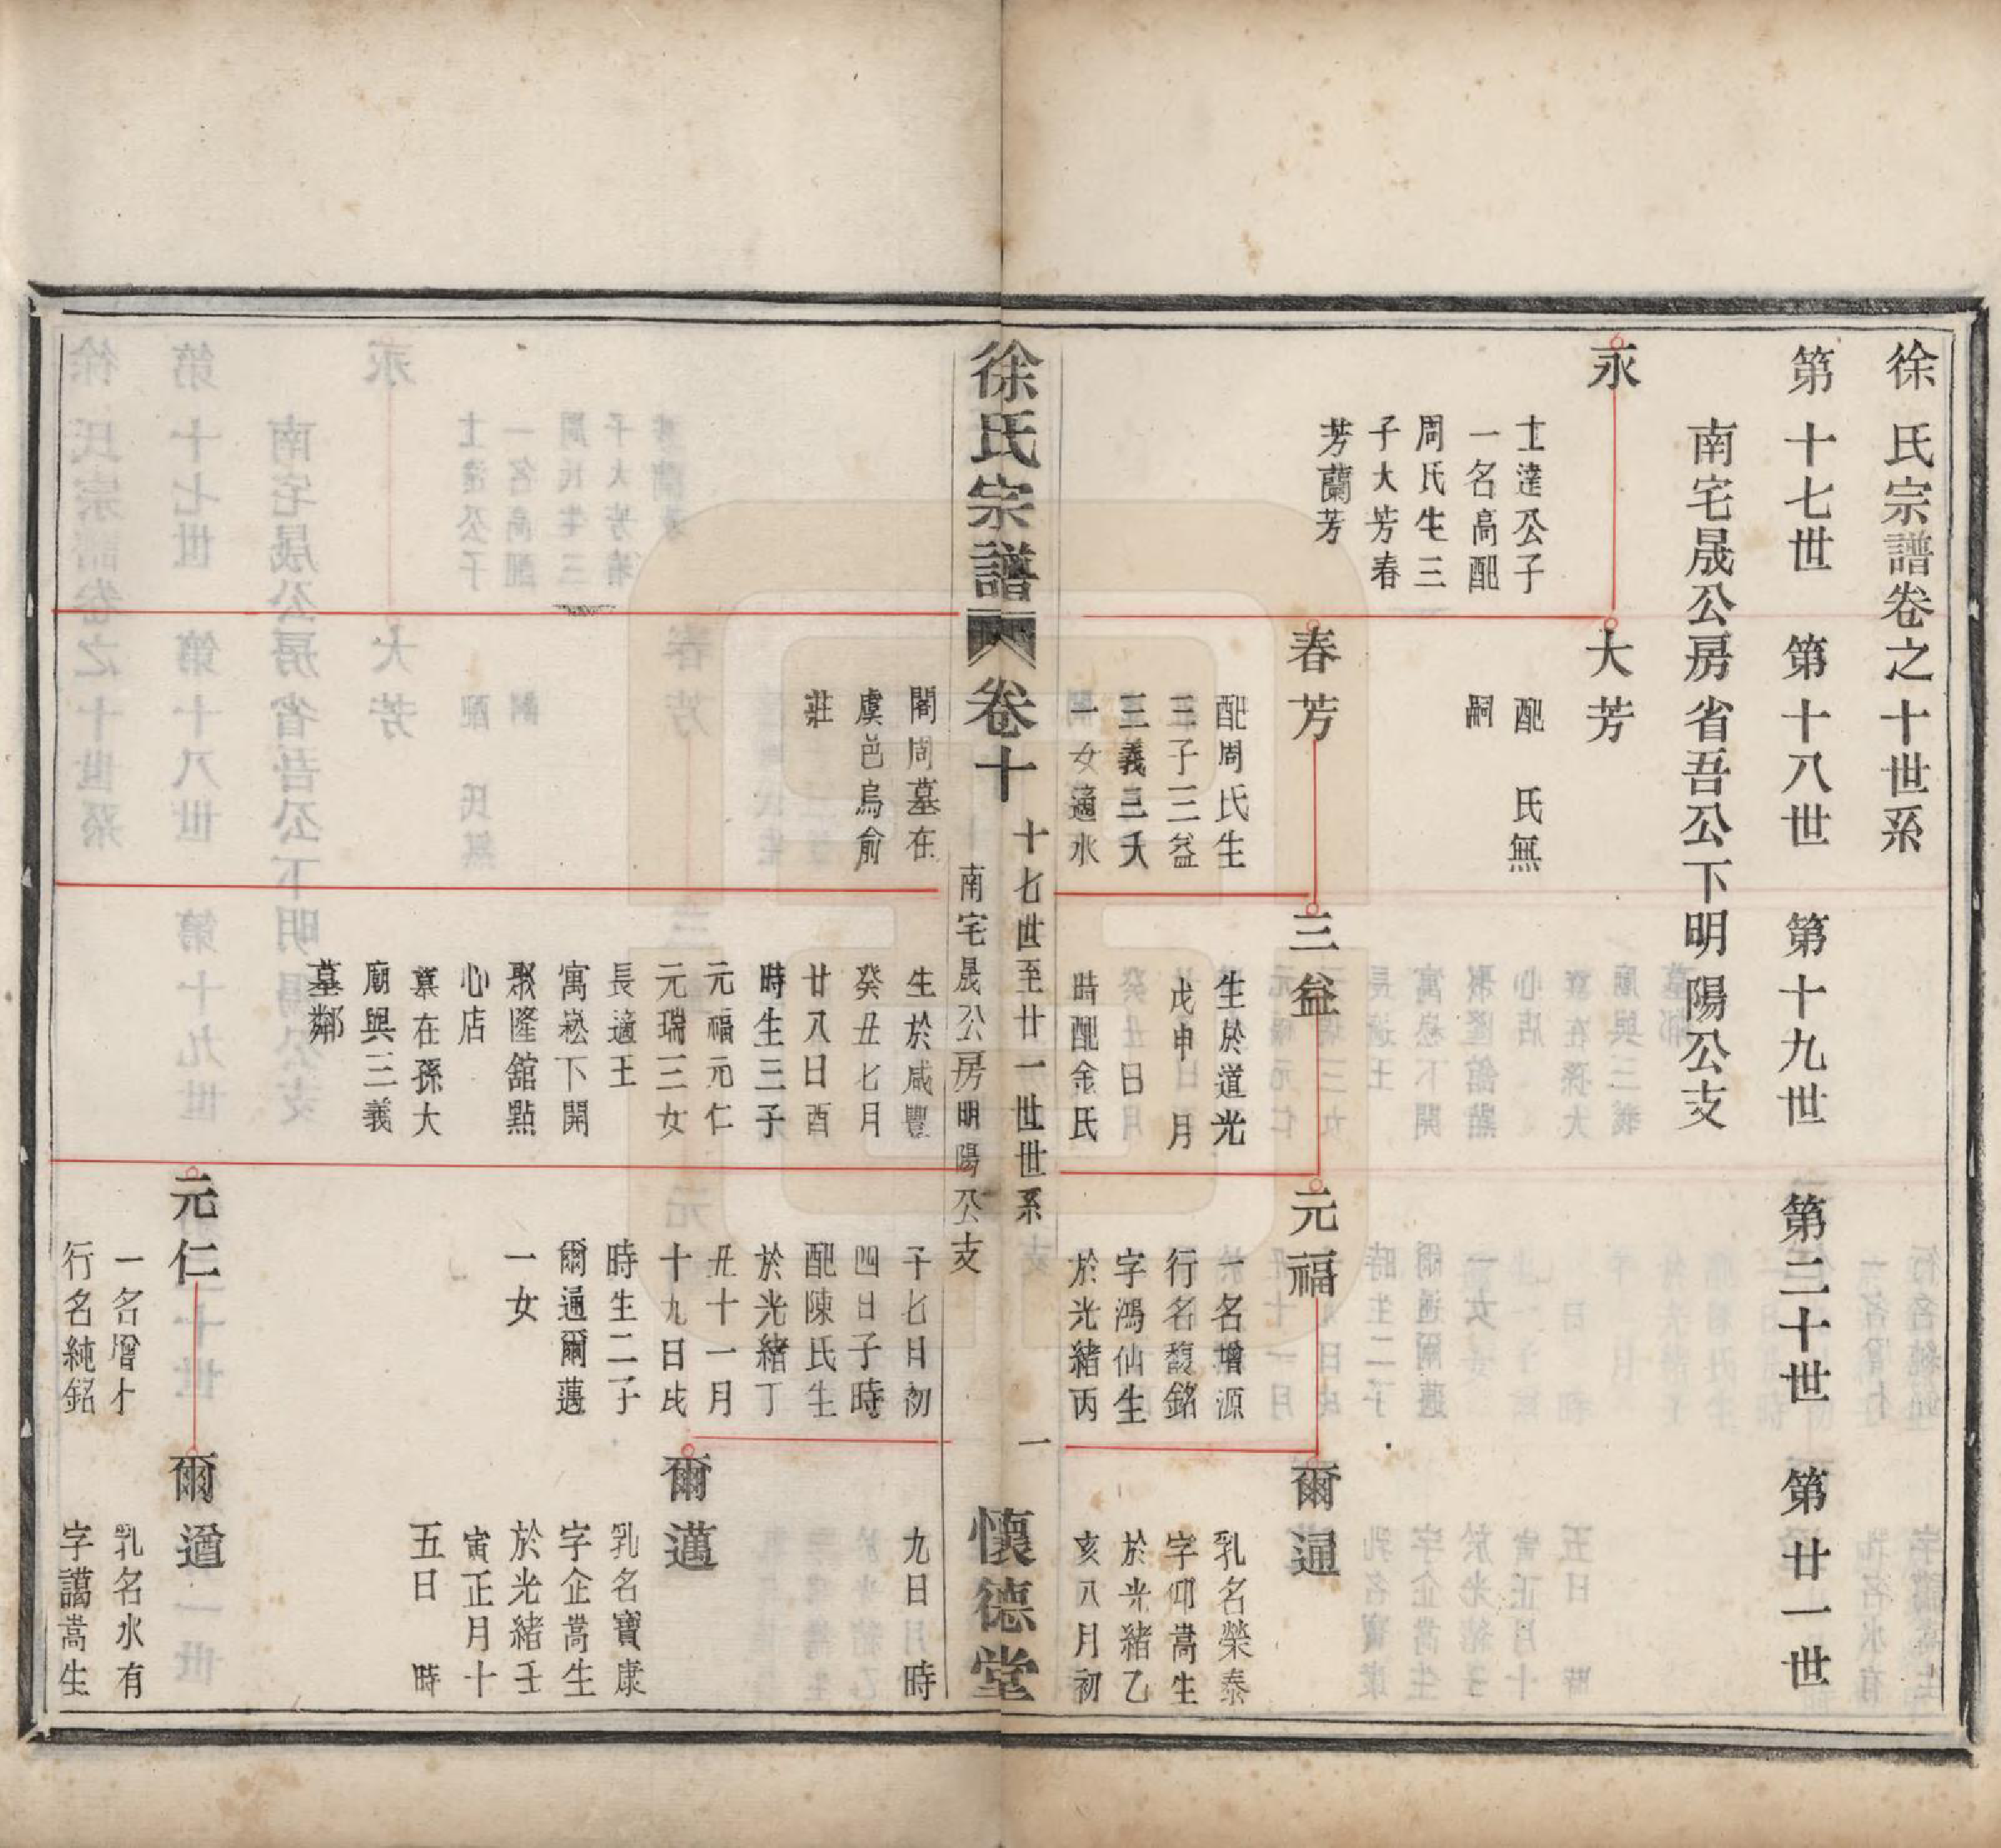 徐氏宗譜卷之十世系
第十七世　第十八世　第十九世　第二十世　第廿一世
南宅晟公房省吾公下明陽公支
永
士達公子
一名高配
周氏生三
子大芳春
芳蘭芳
大芳
配　氏無
嗣
春芳
配周氏生
三子三益
三義三大
一女適水
三益
生於道光
戊申　月
　日
時配金氏
元福
一名增源
行名馥銘
字鴻仙生
於光緒丙
爾通
乳名榮泰
字仰嵩生
於光緒乙
亥八月初
徐氏宗譜　卷十
十七世至廿一世世系
南宅晟公房明陽公支
一
懷德堂
閣周墓在
虞邑烏俞
莊
生於咸豐
癸丑七月
廿八日酉
時生三子
元福元仁
元瑞三女
長適王
寓崧下開
聚隆舘點
心店
墓在孫大
廟與三義
墓鄰
子七日初
四日子時
配陳氏生
於光緒丁
丑十一月
十九日戌
時生二子
爾通爾邁
一女
九日　時
爾邁
乳名寶康
字企嵩生
於光緒壬
寅正月十
五日　時
元仁
一名增才
行名純銘
爾遒
乳名水有
字謁嵩生